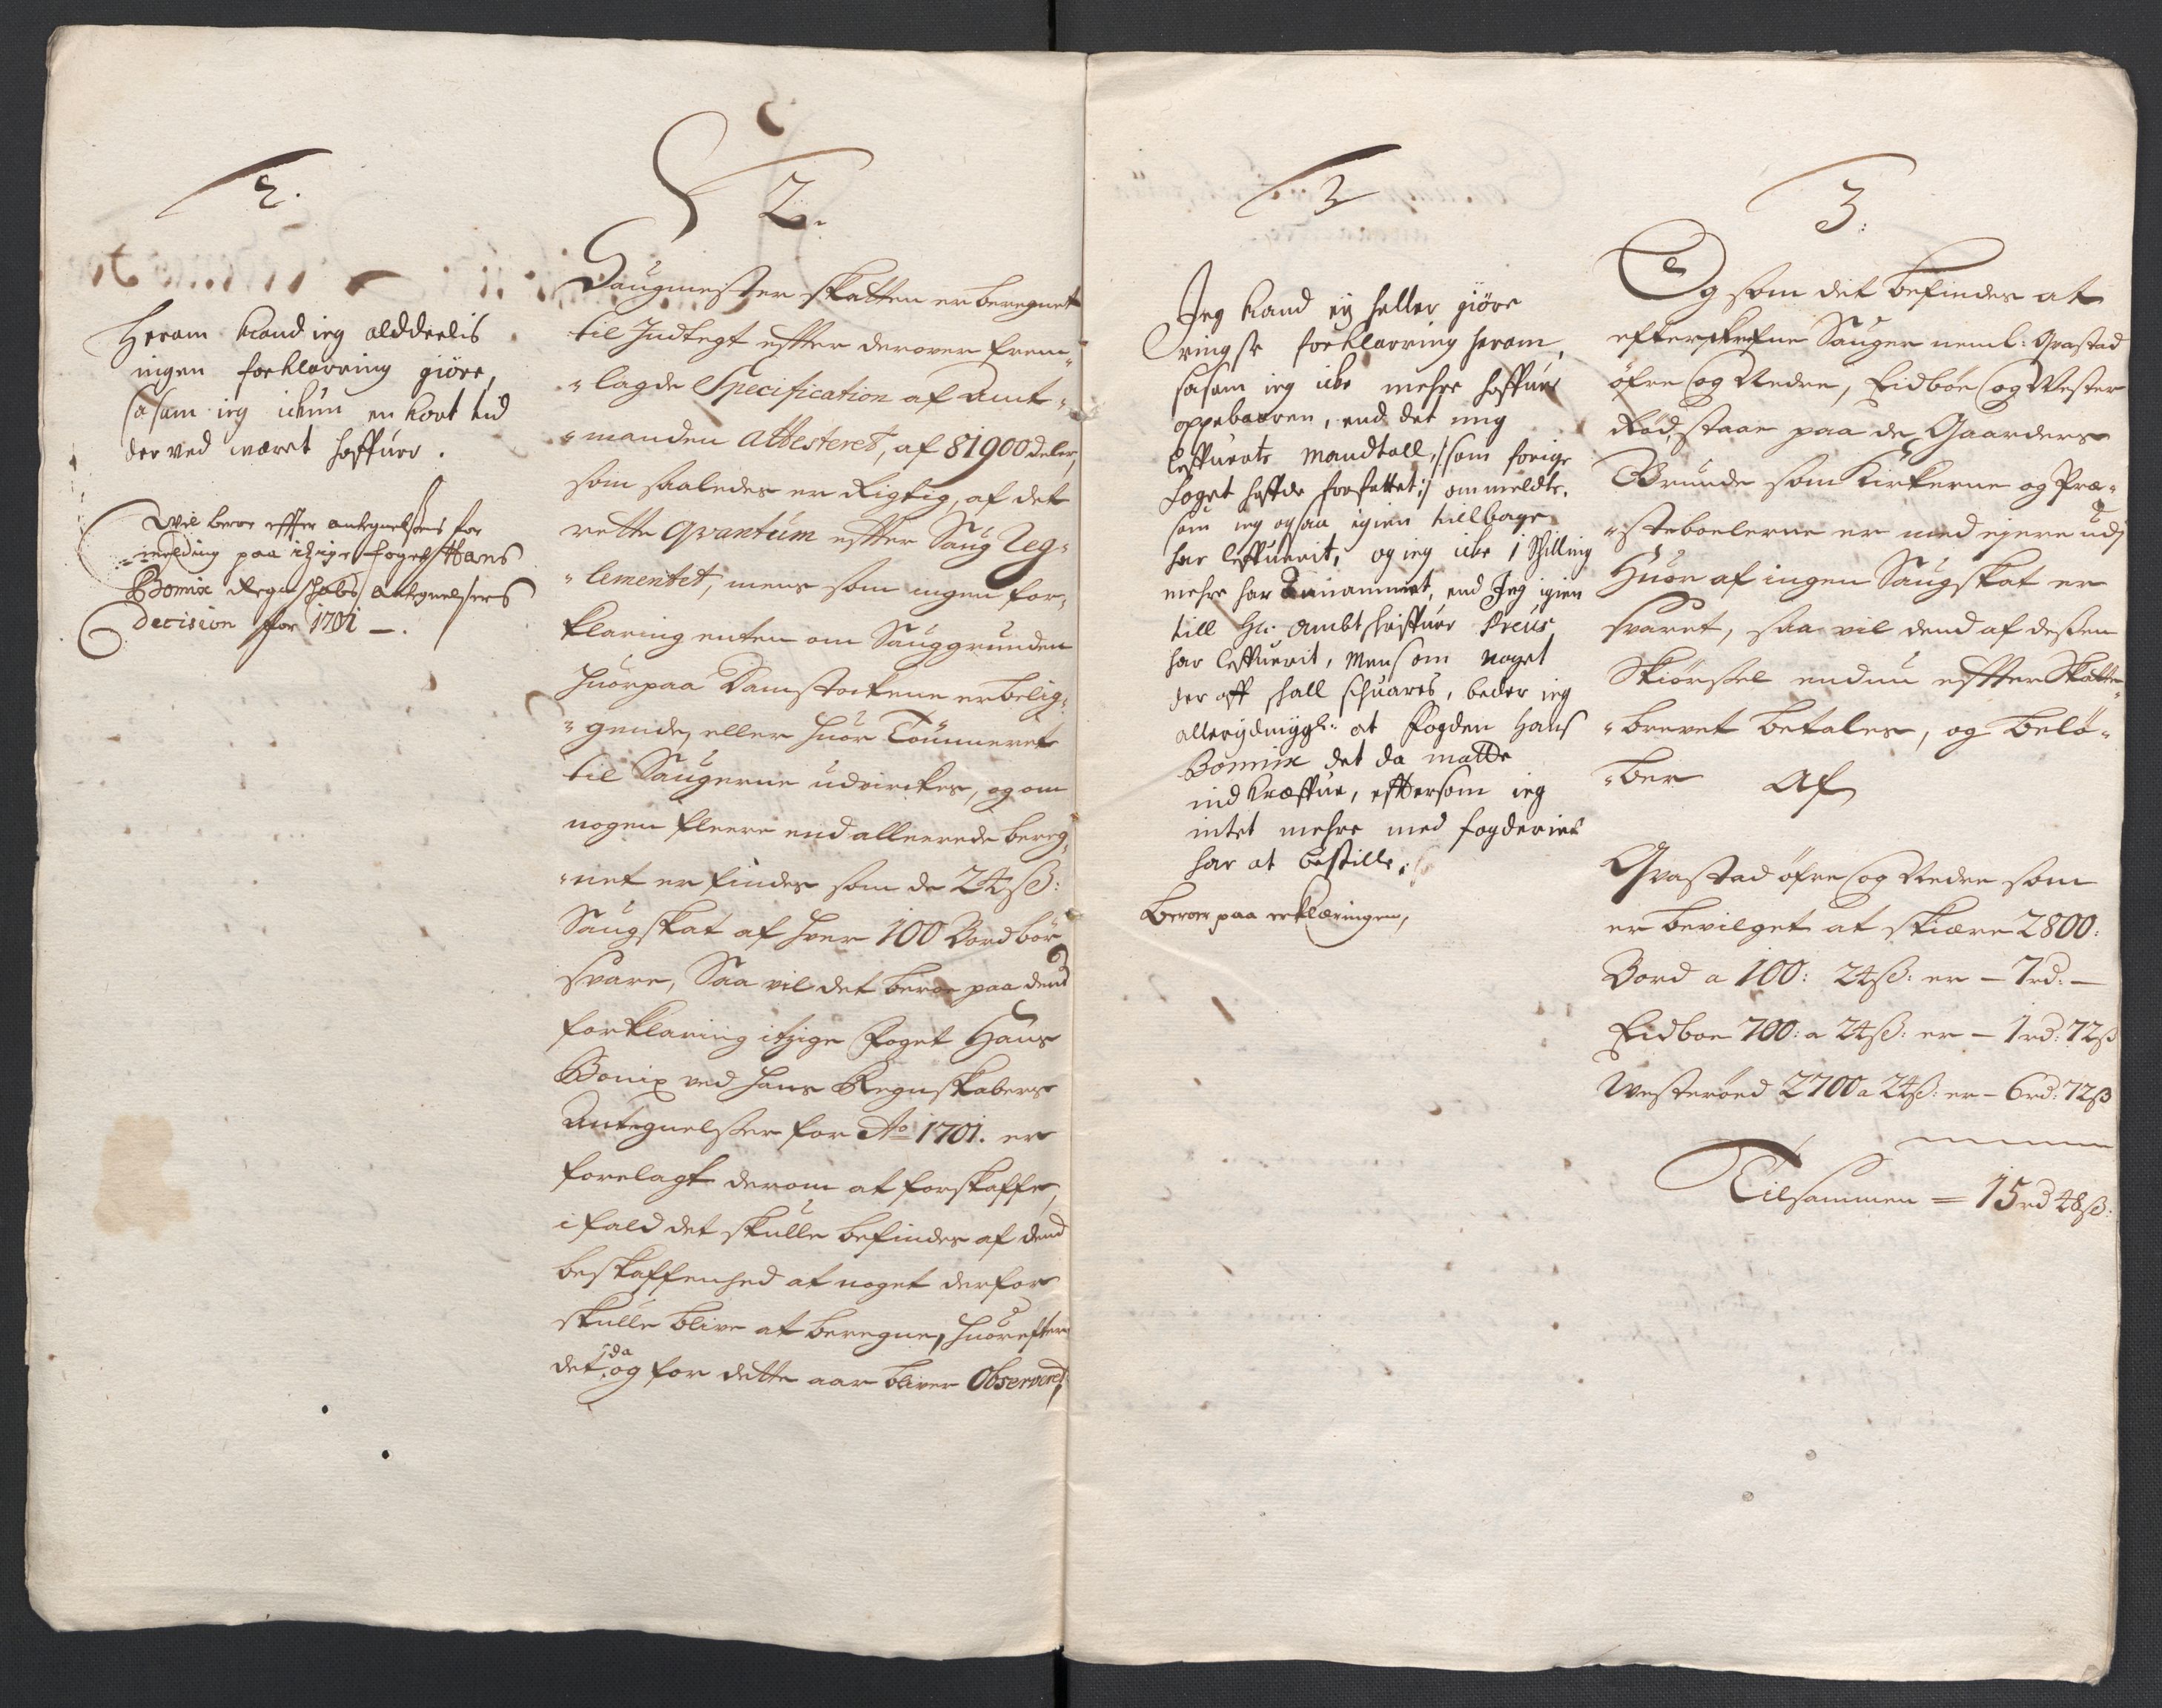 2.
Herom kand ieg alddeelis
ingen forklarring giöre,
sasom ieg ickun en kort tid
der ved wæret haffuer.
Wil beroe effter antegnelsens for
melding paa itzige foget Hans
Bomix Regnskabs Antegnelsers
Decision for 1701 —.
2.
Saugmester skatten er beregnet
til Indtegt effter derover frem-
lagde Specification af Amt-
manden Attesteret, af 81900 deler,
som saaledes er Rigtig, af det
rette qvantum effter Saug Reg-
lementet, mens som ingen for-
klaring enten om Sauggrunden
huorpaa Damstockene er belig-
gende, eller huor Tømmeret
til Saugerne udvirckes, og om
nogen fleere end allereede bereg-
net er findes som de 24 ß:
Saugskat af hver 100 Bord bør
svare, Saa vil det beroe paa dend
forklaring itzige Foget Hans
Bomix ved hans Regnskabers
Antegnelser for Ao 1701. er
forelagt derom at forskaffe,
i fald det skulle befindes af dend
beskaffenhed at noget derfor
skulle blive at beregne, huorefter
det da og for dette aar bliver Observeret,
3
Jeg kand ej heller giöre
ringste forklarring herom,
sasom ieg icke mehre haffuer
oppebaaren, end det mig
leffuerte mandtall, /: som forige
foget hafde forfattet :/ ommeldte,
som ieg ogsaa igien tillbage
har leffuerit, og ieg icke 1 Schilling
mehre har Annammet, end Jeg igien
till Hr: Ambtshaffuer Preus
har leffuerit, Mens om noget
der aff shall schuares, beder ieg
allerydmygl: at Fogden Hans
Bomix det da matte
indkræffue, effttersom ieg
intet mehre med fogderiet
har at bestille.
Beroer paa erklæringen,
3:
Og som det befindes at
efterskrefne Sauger neml: Qvastad
øfre og Nedre, Eidboe og Wester
Rød, staar paa de Gaarders
Grunde som Kirkerne og Præ-
steboelerne er med ejere udj
Huor af ingen Saugskat er
svaret, saa vil dend af deßen
Skiørsel endnu effter Skatte-
brevet betales, og belø-
ber Af
Qvastad øfre og Nedre som
er bevilget at skiære 2800:
Bord a 100: 24 ß: er — 7 rd: —
Eidboe 700: a 24 ß: er — 1 rd: 72 ß
Westerøed 2700 a 24 ß: er — 6 rd: 72 ß
Tilsammen = 15 rd 48 ß: